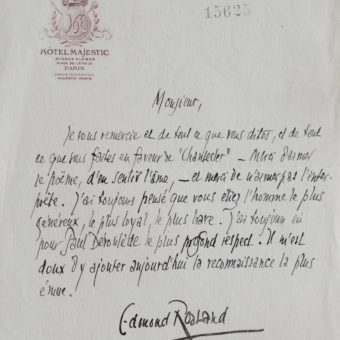 15625
HÔTEL MAJESTIC
AVENUE KLÉBER
PLACE DE L'ÉTOILE
PARIS
ADRESSE TÉLÉGRAPHIQUE
MAJESTIC-PARIS
Monsieur,
Je vous remercie et de tout ce que vous dites, et de tout
ce que vous faites en faveur de "Chantecler" – Merci d'aimer
le poème, d'en sentir l'âme, – et merci de n'aimer pas l'inter-
prète. J'ai toujours pensé que vous étiez l'homme le plus
généreux, le plus loyal, le plus brave. J'ai toujours eu
pour Paul Déroulède le plus profond respect. Il m'est
doux d'y ajouter aujourd'hui la reconnaissance la plus
émue.
Edmond Rostand